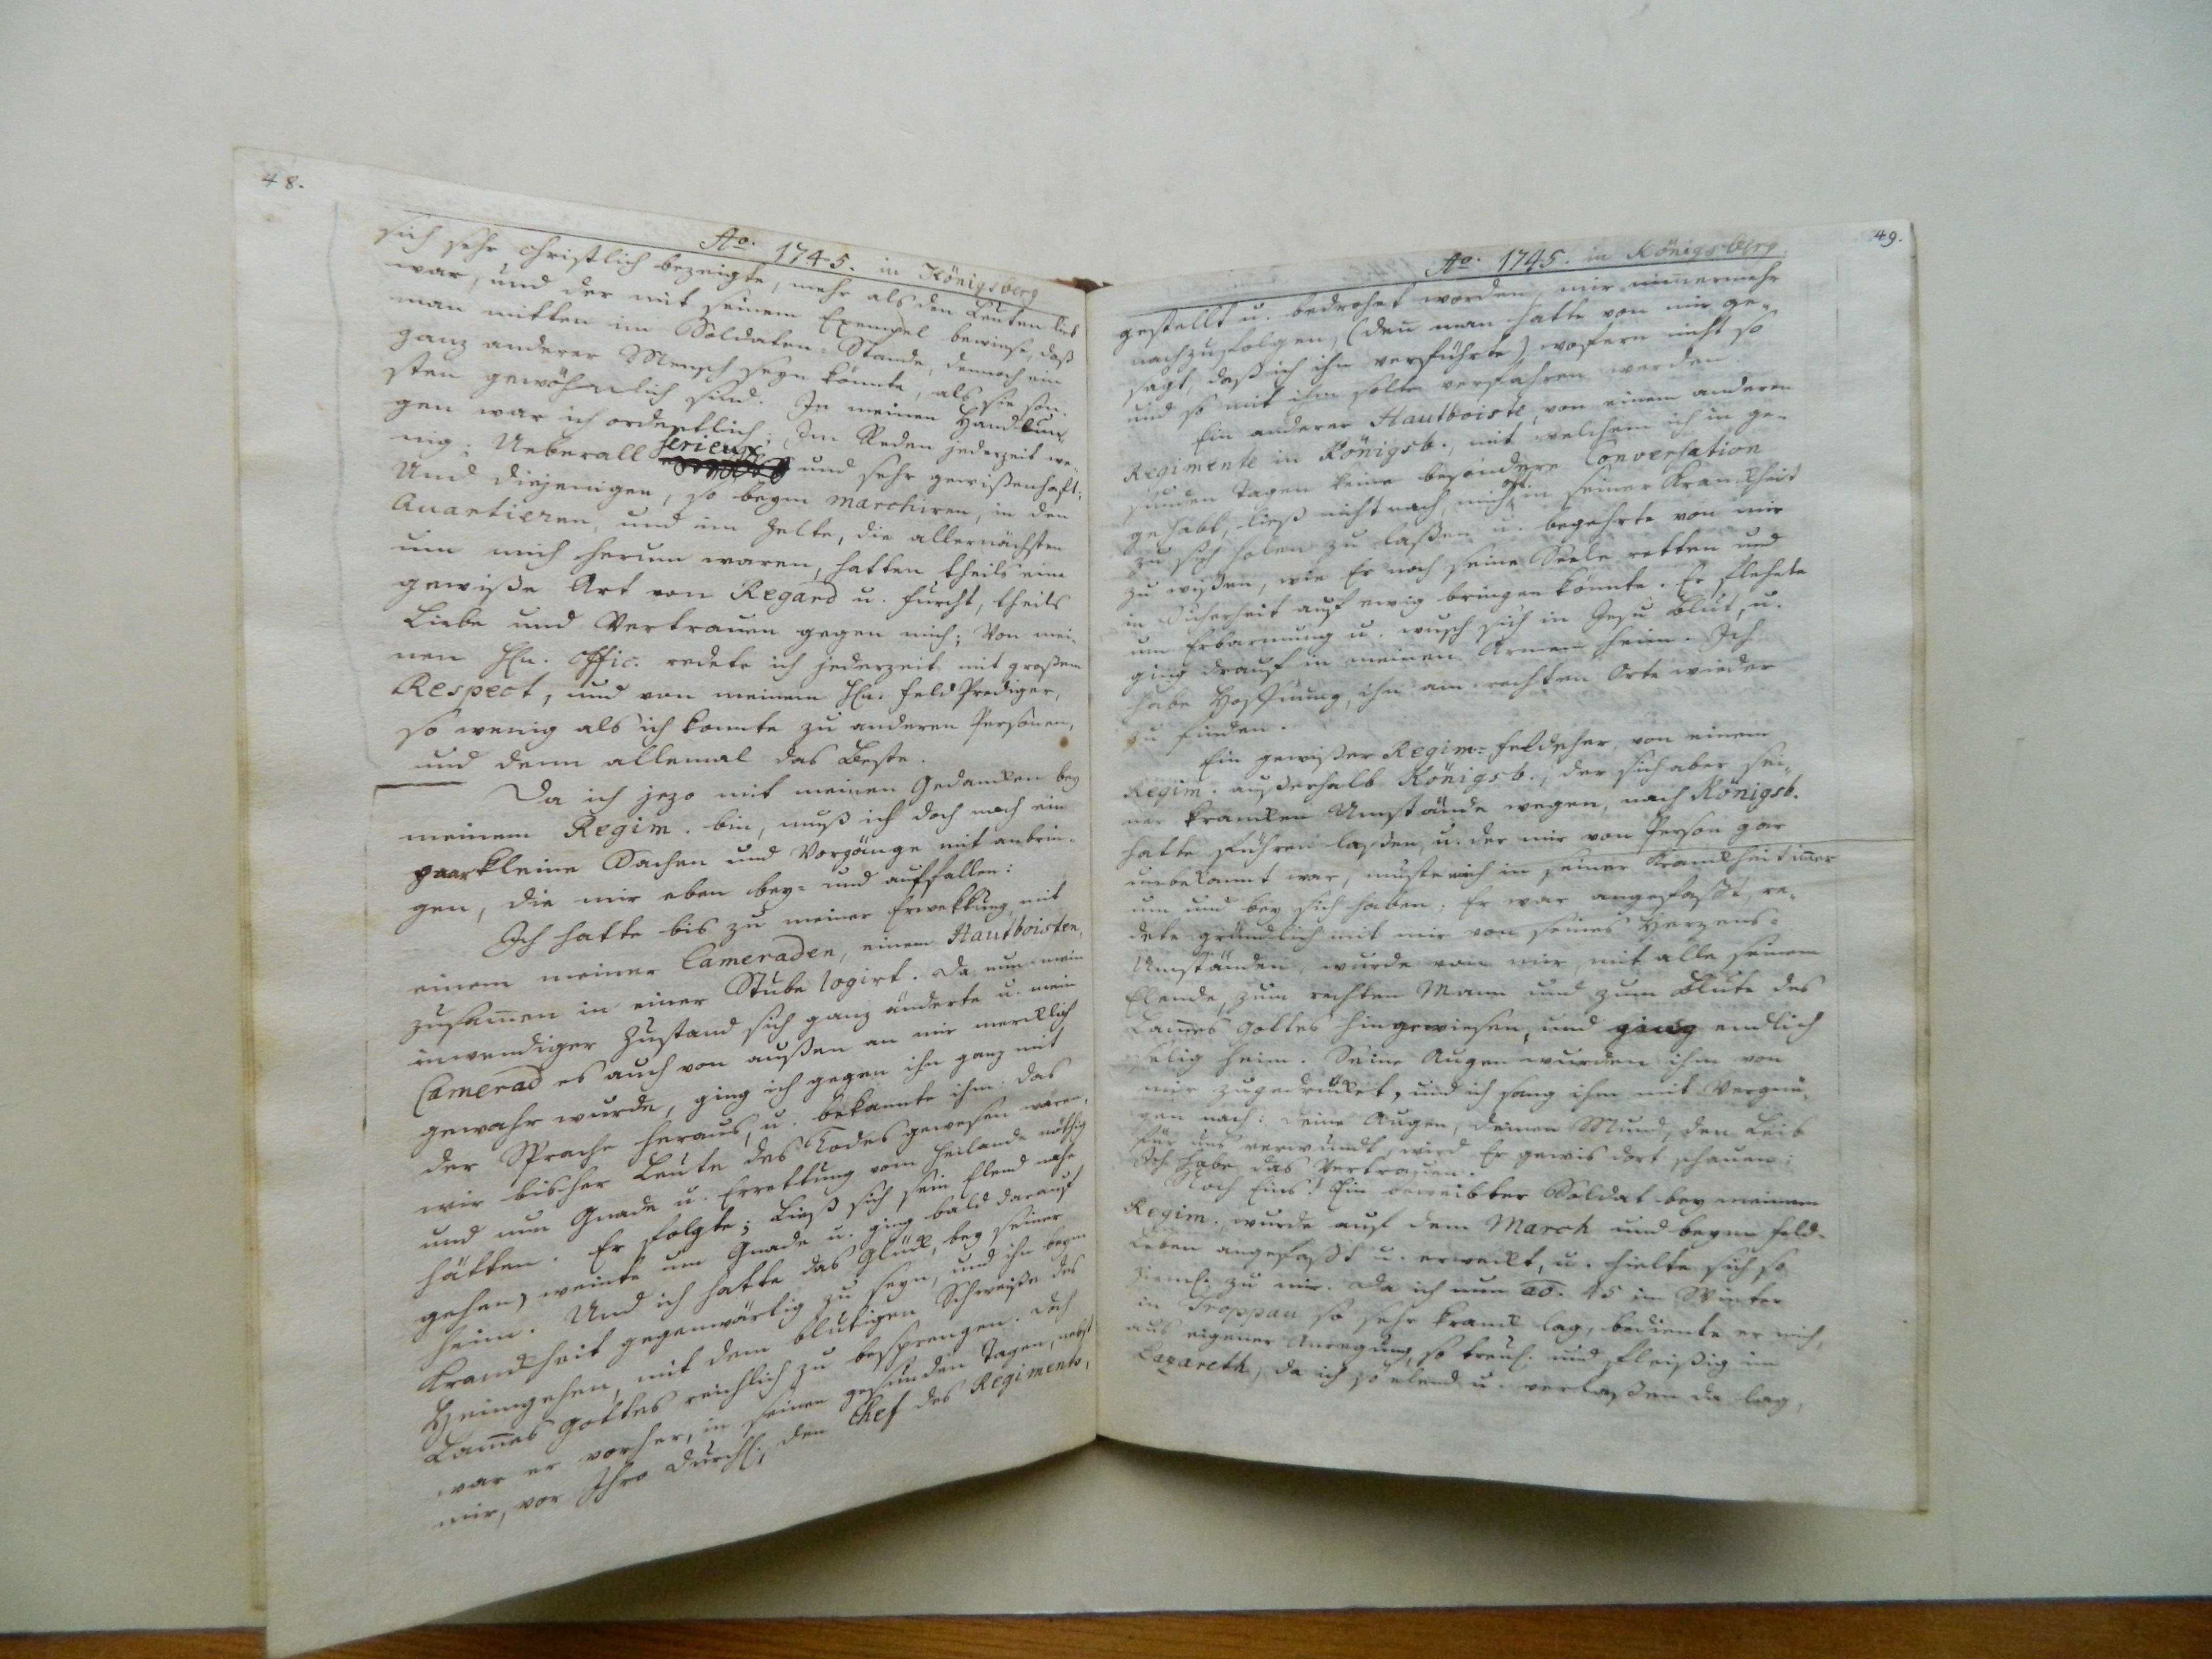 48.
Ao. 1745. in Königsberg
sich sehr christlich bezeigte, mehr als den Leuten lieb
war, und der mit seinem Exempel bewiese, daß
man mitten im Soldaten-Stande, dennoch ein
ganz anderer Mensch seyn könnte, als sie son-
sten gewöhnlich sind. In meinen Handlun-
gen war ich ordentlich; Im Reden jederzeit we-
nig. Ueberall serieux und sehr gewißenhaft;
Und diejenigen, so beym marchiren, in den
Quartieren, und im Zelte, die allernächsten
um mich herum waren, hatten theils eine
gewiße Art von Regard u. Furcht, theils
Liebe und Vertrauen gegen mich; Von mei-
nen Hln. Offic. redete ich jederzeit mit großem
Respect, und von meinem Hln. Feld Prediger,
so wenig als ich konnte zu anderen Personen,
und denn allemal das Beste.
Da ich jezo mit meinen Gedanken bey
meinem Regim. bin, muß ich doch noch ein
paar kleine Sachen und Vorgänge mit anbrin-
gen, die mir eben bey- und auffallen:
Ich hatte bis zu meiner Erwekkung mit
einem meiner Cameraden, einem Hautboisten,
zusam̄en in einer Stube logirt. Da nun mein
inwendiger Zustand sich ganz änderte u. mein
Camerad es auch von außen an mir merklich
gewahr wurde, ging ich gegen ihn ganz mit
der Sprache heraus, u. bekannte ihm: das
wir bisher Leute des Todes gewesen waren,
und nun Gnade u. Errettung vom Heilande nöthig
hätten. Er folgte; Ließ sich sein Elend nahe
gehen, weinte um Gnade u. ging bald darauf
heim. Und ich hatte das Glück, bey seiner
Krankheit gegenwärtig zu seyn, und ihn beym
Heimgehen, mit dem blutigen Schweiße des
Lam̄es Gottes reichlich zu besprengen. Doch
war er vorher, in seinen gesunden Tagen, nebst
mir, vor Ihro Durchl., den Chef des Regiments,
49.
Ao. 1745. in Königsberg.
gestellt u. bedrohet worden, mir nim̄ermehr
nachzufolgen, (den̄ man hatte von mir ge-
sagt, daß ich ihn verführte) wofern nicht so
und so mit ihm solte verfahren werden.
Ein anderer Hautboiste, von einem anderen
Regimente in Königsb., mit welchem ich in ge-
sunden Tagen keine besondere Conversation
gehabt, ließ nicht nach, mich oft in seiner Krankheit
zu sich holen zu laßen u. begehrte von mir
zu wißen, wie Er noch seine Seele retten und
in Sicherheit auf ewig bringen könnte. Er flehete
um Erbarmung u. wusch sich in Jesu Blut, u.
ging drauf in meinen Armen heim. Ich
habe Hoffnung, ihn am rechten Orte wieder
zu finden.
Ein gewißer Regim-Feldscher, von einem
Regim. außerhalb Königsb., der sich aber sei-
ner kranken Umstände wegen, nach Königsb.
hatte führen laßen, u. der mir von Person gar
unbekannt war, muste mich in seiner Krankheit im̄er
um und bey sich haben; Er war angefaßt, re-
dete gründlich mit mir von seines Herzens-
Umständen, wurde von mir, mit alle seinem
Elende, zum rechten Mann und zum Blute des
Lam̄es Gottes hingewiesen, und ging endlich
selig heim. Seine Augen wurden ihm von
mir zugedrücket, und ich sang ihm mit Vergnü-
gen nach: deine Augen, deinen Mund, den Leib
für uns verwundt, wird Er gewis dort schauen;
Ich habe das Vertrauen.
Noch Eins! Ein beweibter Soldat bey meinem
Regim. wurde auf dem March und beym Feld-
Leben angefaßt u. erweckt, u. hielte sich so
ziemł. zu mir. Da ich nun ao. 45 im Winter
in Troppau so sehr krank lag, bediente er mich,
aus eigener Anregung, so treuł. und fleißig im
Lazareth, da ich so elend u. verlaßen da lag,